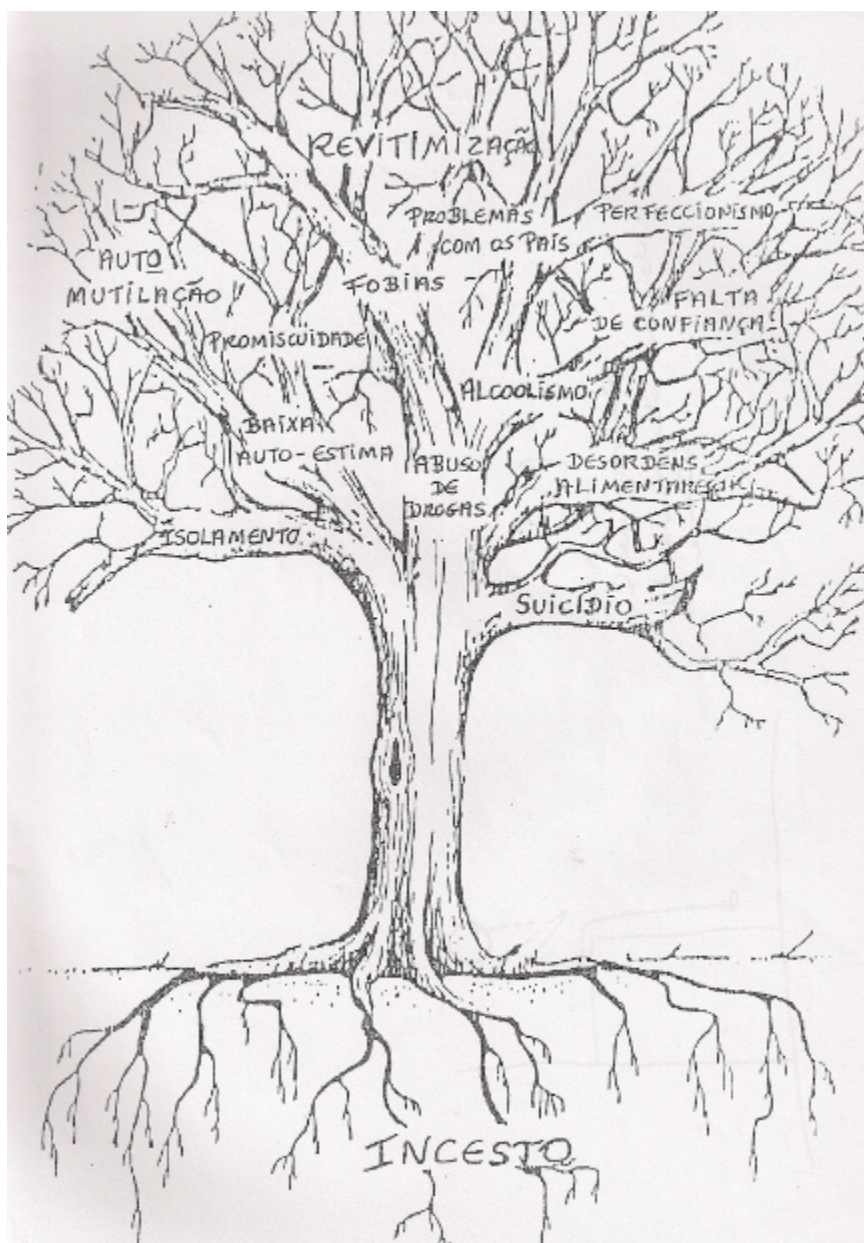 REVITIMIZAÇÃO
PROBLEMAS
COM OS PAIS
PERFECCIONISMO
AUTO
MUTILAÇÃO
FOBIAS
FALTA
DE CONFIANÇA
PROMISCUIDADE
ALCOOLISMO
BAIXA
AUTO-ESTIMA
ABUSO
DE
DROGAS
DESORDENS
ALIMENTARES
ISOLAMENTO
SUICÍDIO
INCESTO